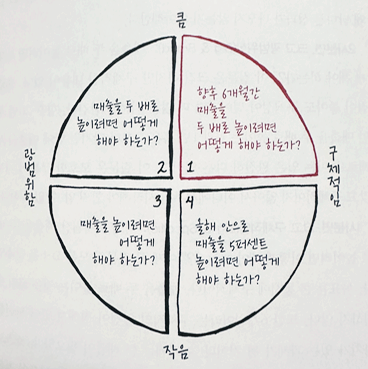 큼
향후 6개월간
매출을
두 배로 높이려면
어떻게 해야 하는가?
1
매출을 두 배로
높이려면 어떻게
해야 하는가?
2
광범위함
구체적임
3
매출을 높이려면
어떻게
해야 하는가?
4
올해 안으로
매출을 5퍼센트
높이려면 어떻게
해야 하는가?
작음